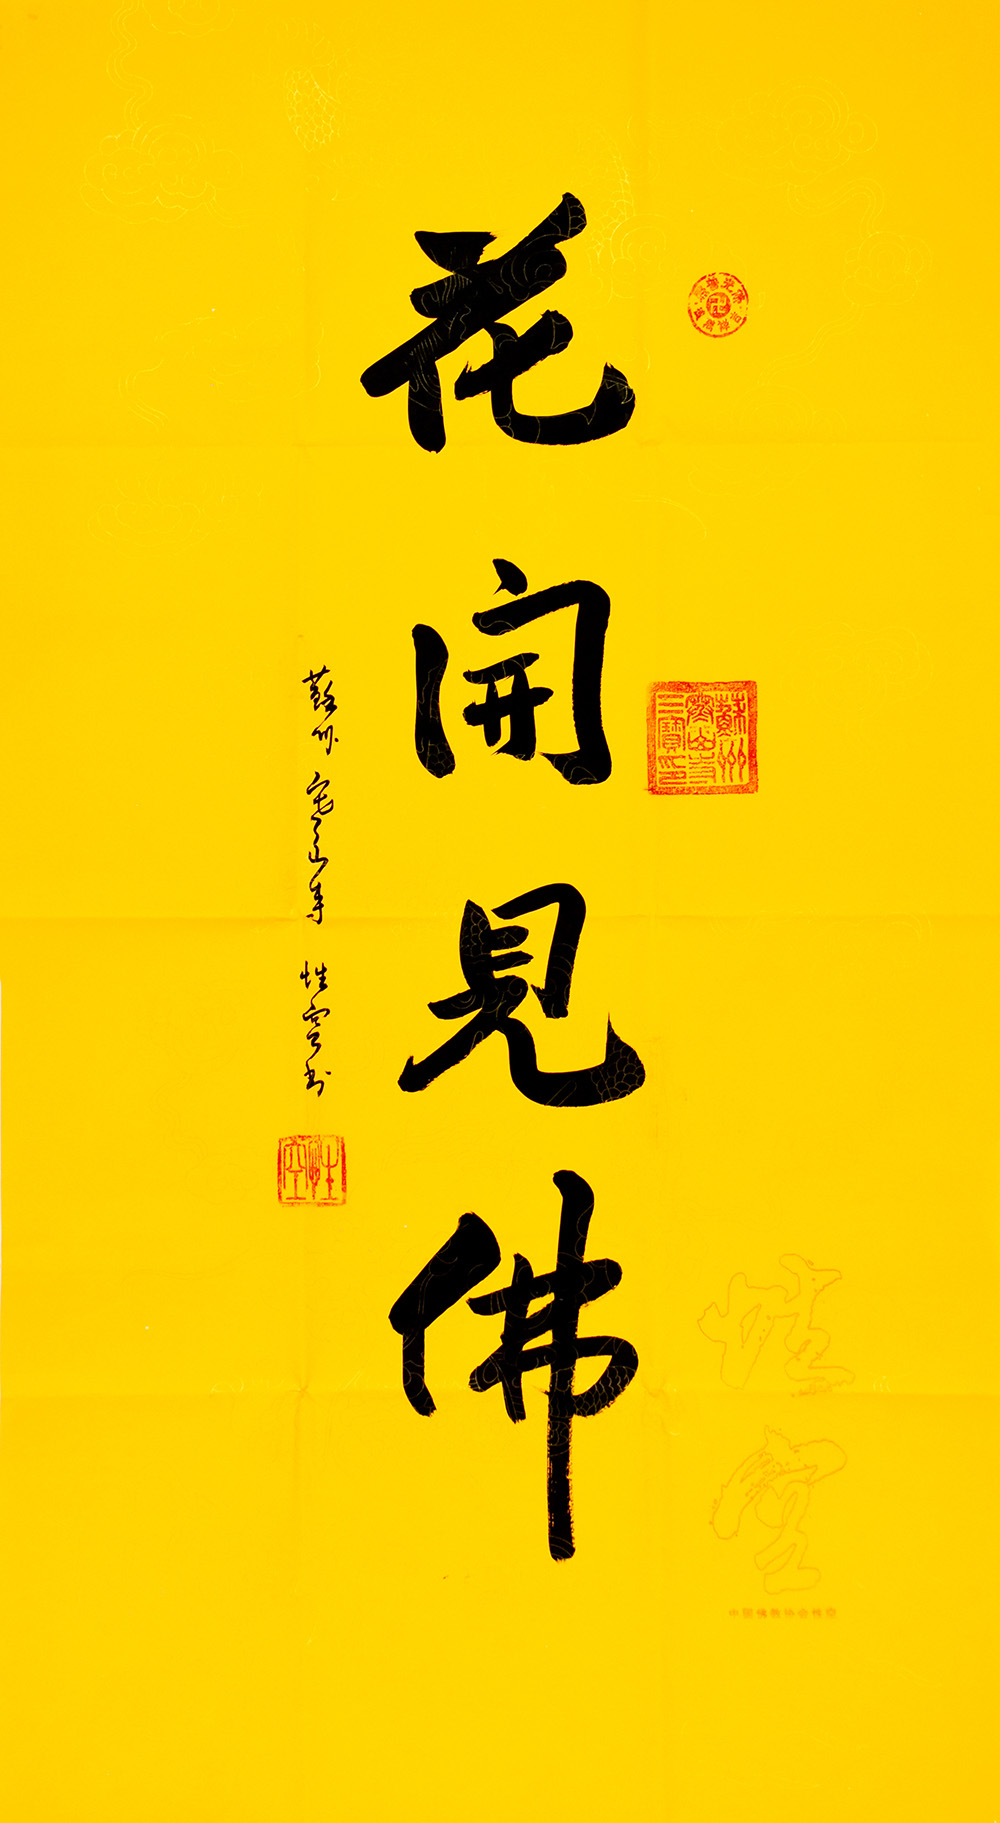 花開見佛
蘇州寒山寺 性空書
蘇州寒山寺三寶印
性空
性空
中国佛教协会性空